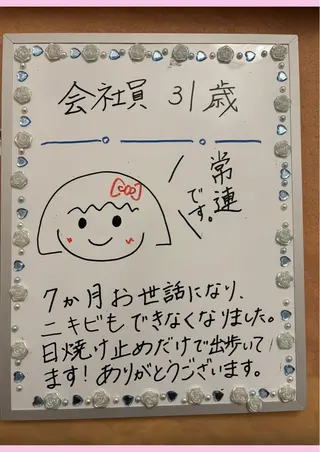 会社員 31歳
常連
です。
7か月お世話になり、
ニキビもできなくなりました。
日焼け止めだけで出歩いて
ます!ありがとうございます。